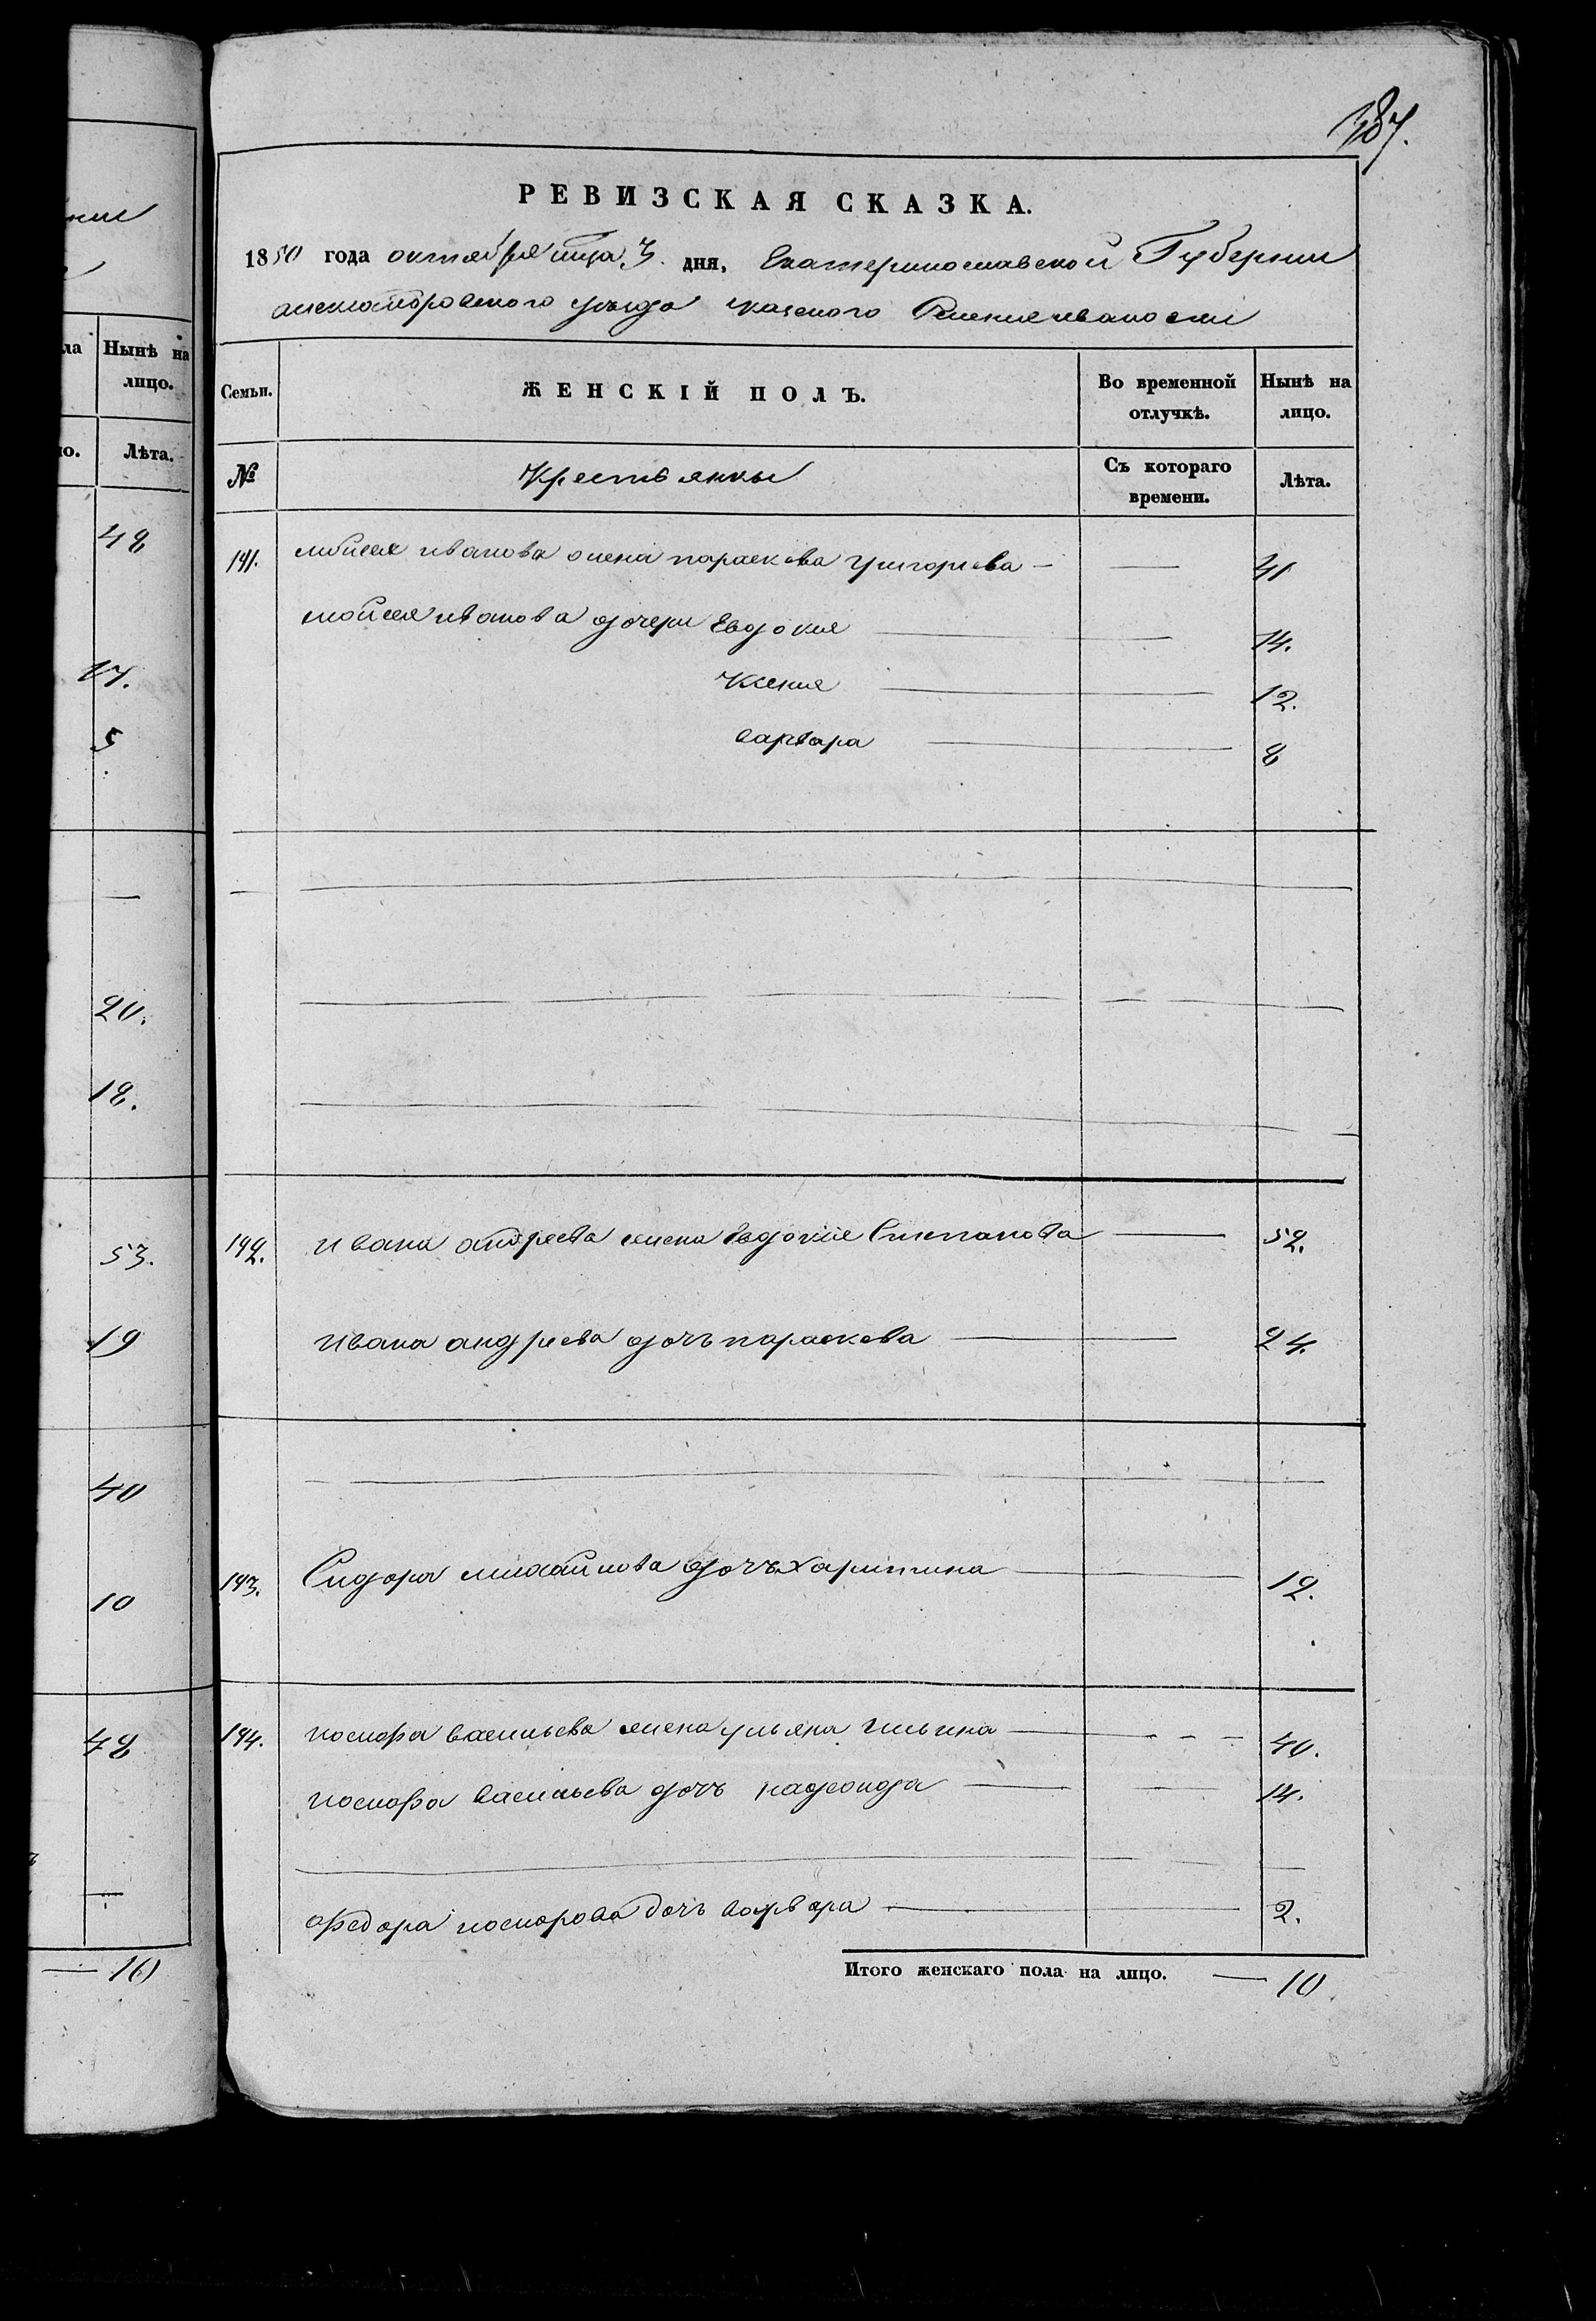 нии
ла Нынѣ на
лицо.
но. Лѣта.
48
17.
5
—
20.
18.
53.
19
40
10
48
—
— 10
387.
РЕВИЗСКАЯ СКАЗКА.
1850 года октября мца 3. дня, Екатеринославской Губернии
александровского уезда казеного Селения
Семьи. ЖЕНСКІЙ ПОЛЪ. Во временной отлучкѣ. Нынѣ на лицо.
№ Крестьянки Съ котораго времени. Лѣта.
141. мойсея иванова жена параскева григорьева — — 41
мойсея иванова дочери Евдокия — 14.
Ксения — 12.
варвара — 8
142. ивана андреева жена Евдокия Степанова — 52.
ивана андреева дочъ параскева — 24.
143. Сидора михайлова дочъ харитина — 12.
144. никифора васильева жена ульяна ильина — 40.
никифора васильева дочъ — 14.
федора никифорова дочъ варвара — 2.
Итого женскаго пола на лицо. — 10